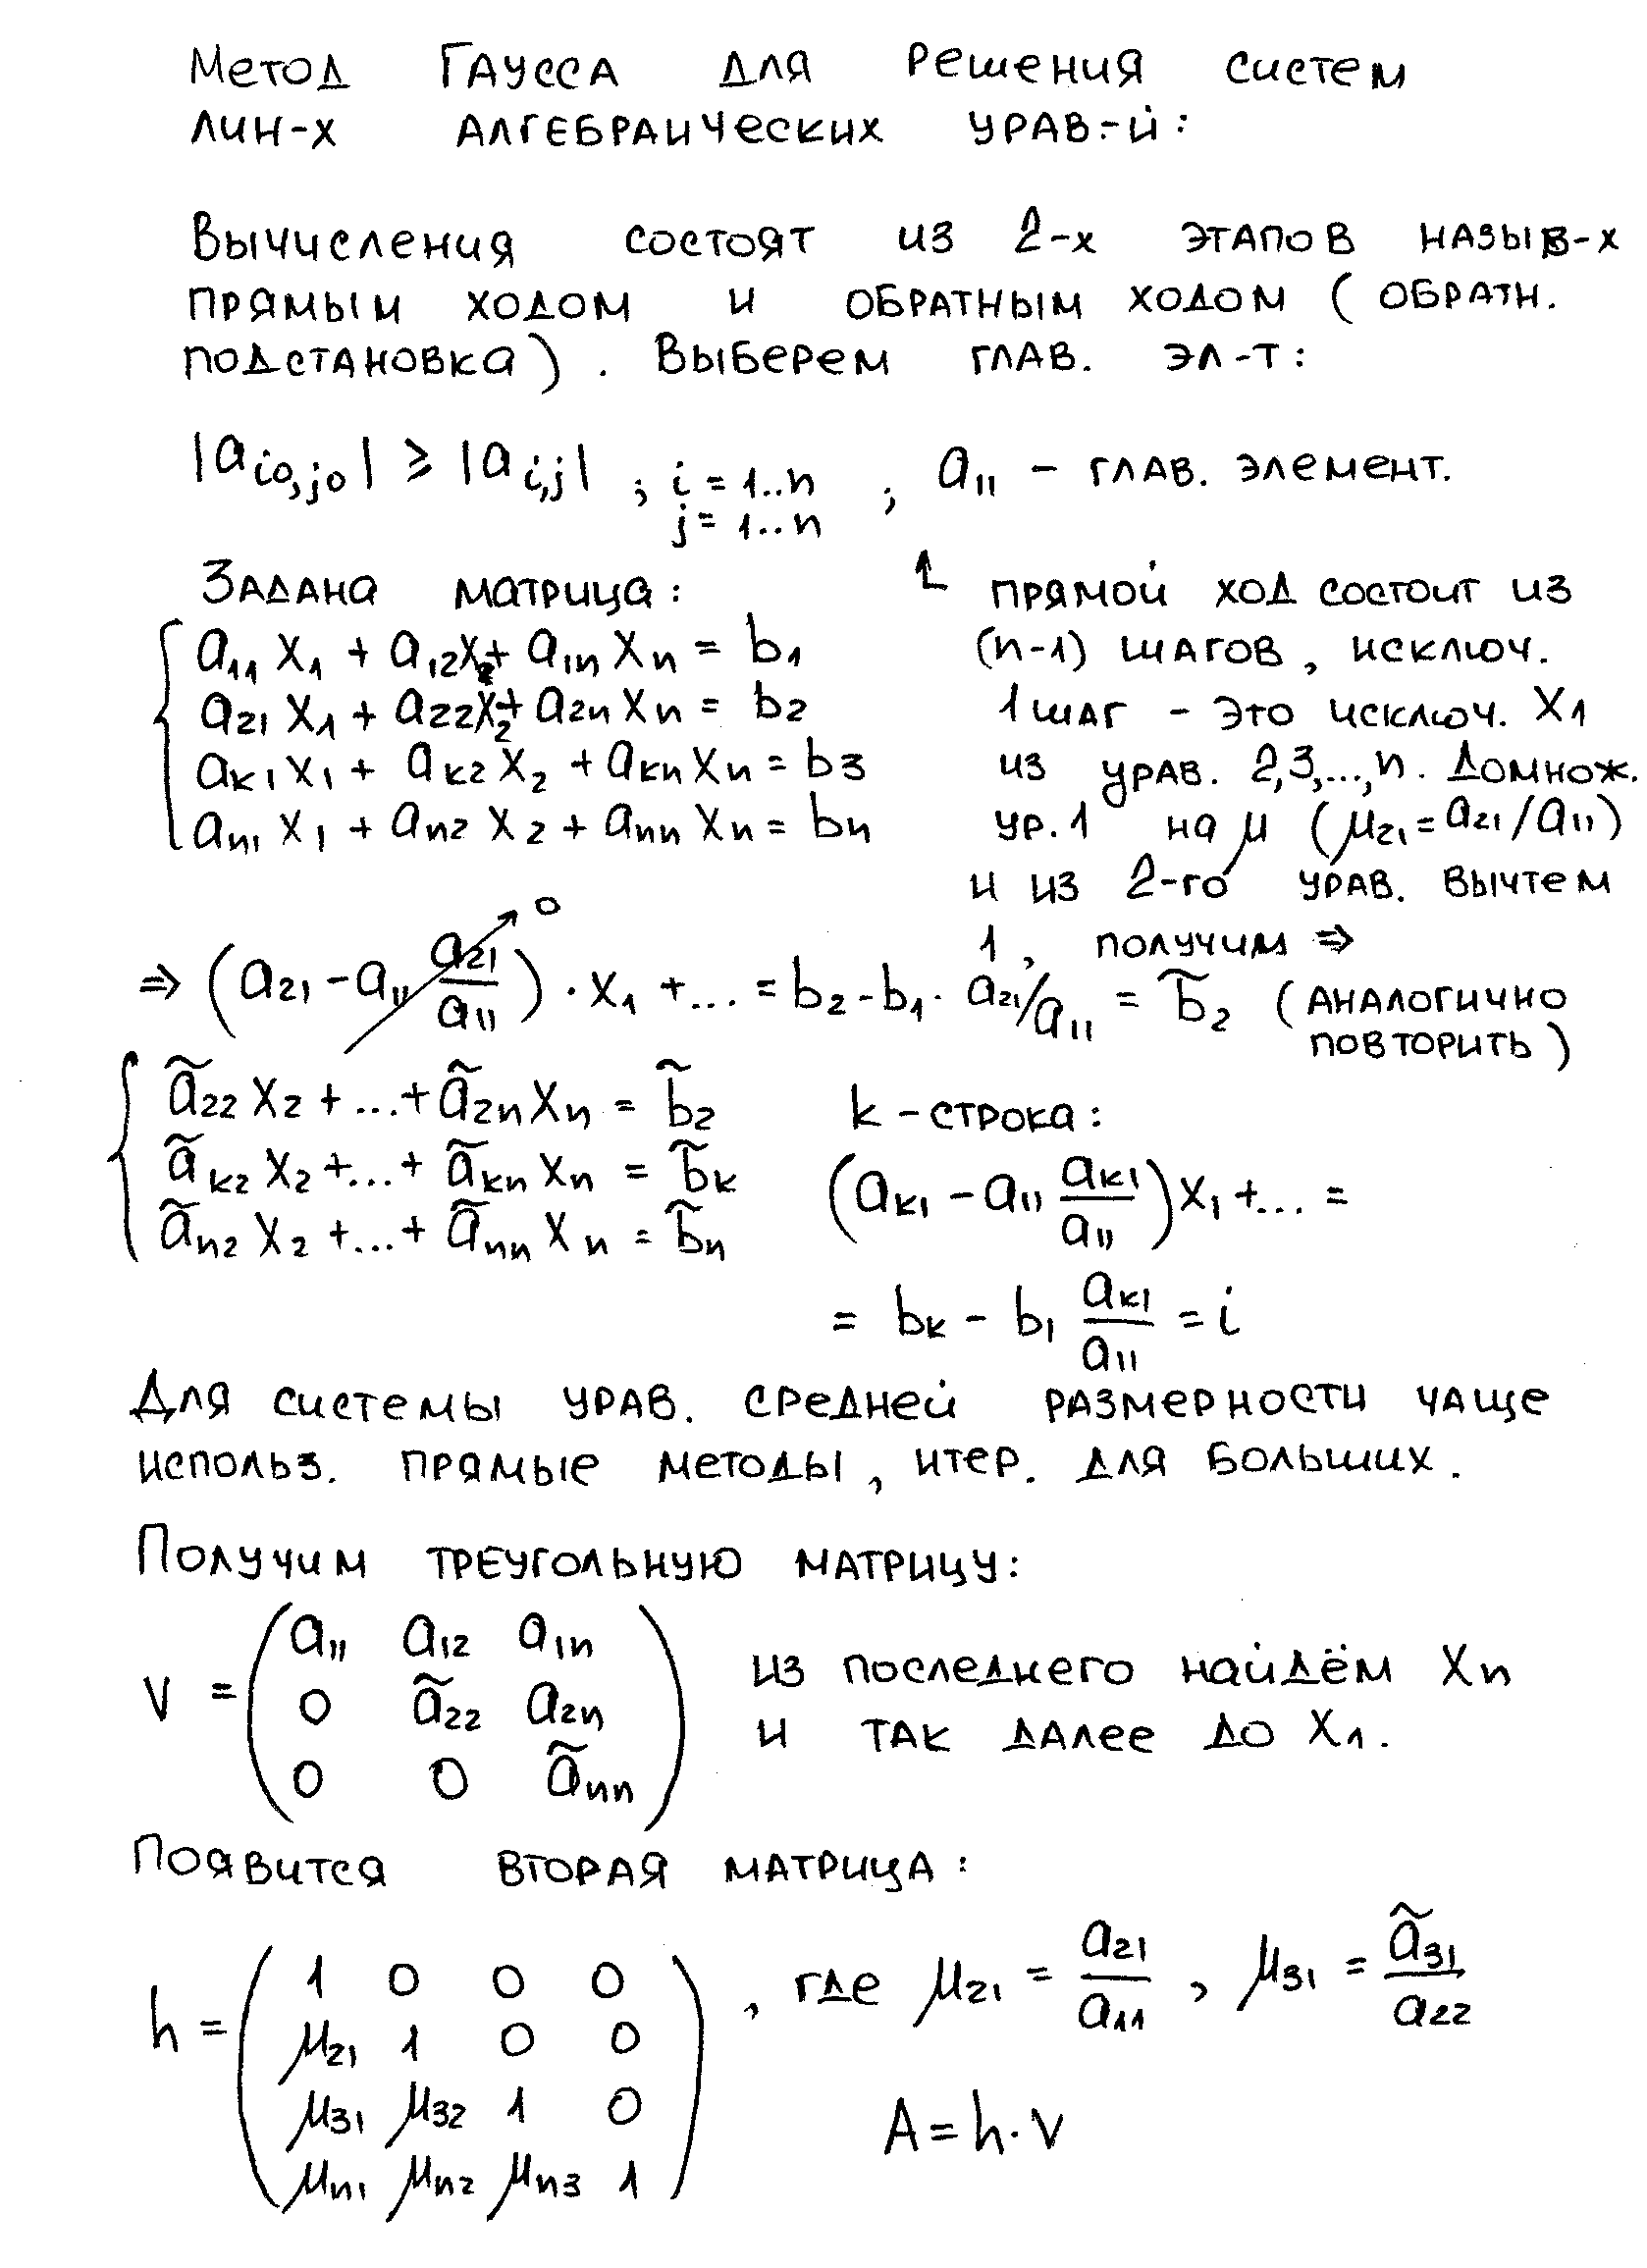 Метод Гаусса для решения систем
лин-х алгебраических урав.-й:
Вычисления состоят из 2-х этапов назыв-х
прямым ходом и обратным ходом (обратн.
подстановка). Выберем глав. эл-т:
|a_{i0,j0}| ≥ |a_{i,j}| ; i = 1..n ; a₁₁ – глав. элемент.
j = 1..n
Задана матрица:
a₁₁ x₁ + a₁₂x₂ + a₁ₙ xₙ = b₁
a₂₁ x₁ + a₂₂x₂ + a₂ₙ xₙ = b₂
aₖ₁ x₁ + aₖ₂ x₂ + aₖₙ xₙ = b₃
aₙ₁ x₁ + aₙ₂ x₂ + aₙₙ xₙ = bₙ
↑ прямой ход состоит из
(n-1) шагов, исключ.
1 шаг – это исключ. x₁
из урав. 2,3,...,n. Домнож.
ур.1 на μ (μ₂₁ = a₂₁/a₁₁)
и из 2-го урав. вычтем
1, получим ⇒
⇒ (a₂₁ – a₁₁ a₂₁/a₁₁)→0 · x₁ + ... = b₂ - b₁ · a₂₁/a₁₁ = b̃₂ (аналогично
повторить)
ã₂₂ x₂ + ... + ã₂ₙ xₙ = b̃₂
ãₖ₂ x₂ + ... + ãₖₙ xₙ = b̃ₖ
ãₙ₂ x₂ + ... + ãₙₙ xₙ = b̃ₙ
k – строка:
(aₖ₁ – a₁₁ aₖ₁/a₁₁) x₁ + ... =
= bₖ – b₁ aₖ₁/a₁₁ = i
Для системы урав. средней размерности чаще
использ. прямые методы, итер. для больших.
Получим треугольную матрицу:
v = ( a₁₁ a₁₂ a₁ₙ
0 ã₂₂ a₂ₙ
0 0 ãₙₙ )
из последнего найдём xₙ
и так далее до x₁.
Появится вторая матрица:
h = ( 1 0 0 0
μ₂₁ 1 0 0
μ₃₁ μ₃₂ 1 0
μₙ₁ μₙ₂ μₙ₃ 1 )
, где μ₂₁ = a₂₁/a₁₁ , μ₃₁ = ã₃₁/a₂₂
A = h · v